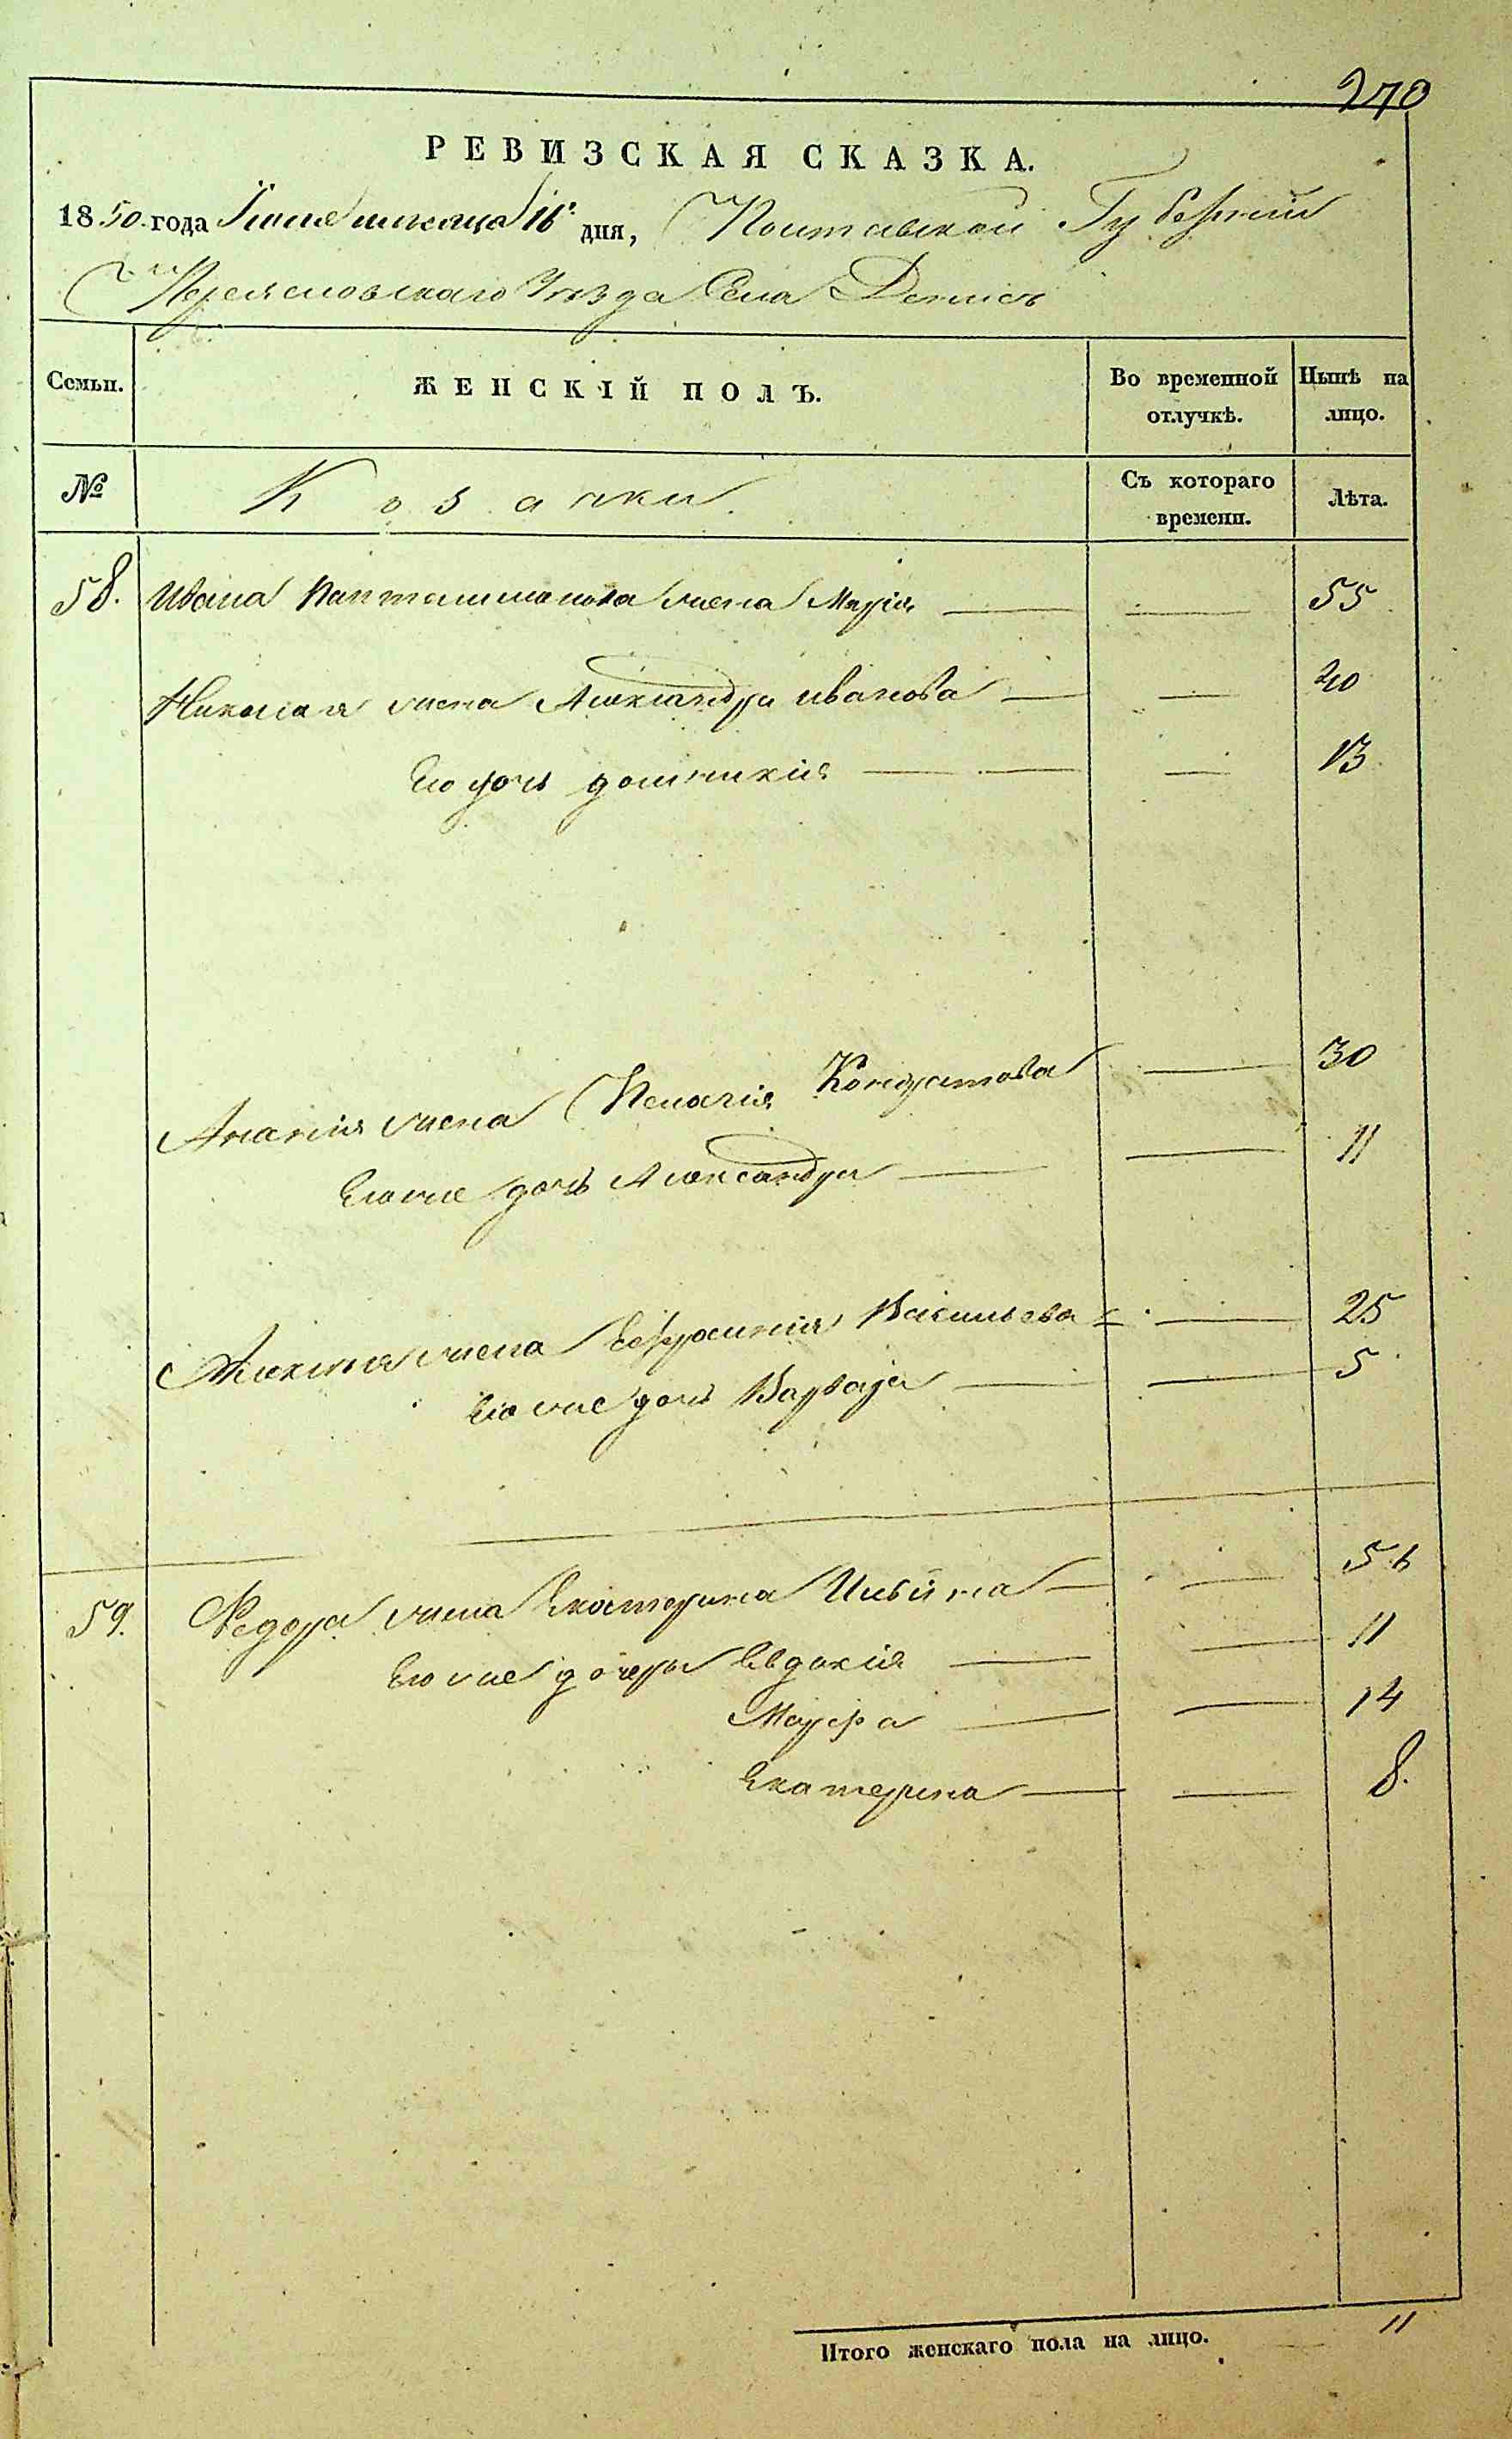 270
РЕВИЗСКАЯ СКАЗКА.
1850 года Іюня месяца 16 дня, Полтавской Губерніи
Переяславскаго Уезда Села Денисъ
Семьи. ЖЕНСКІЙ ПОЛЪ. Во временной отлучкѣ. Нынѣ на лицо.
№ Козачки Съ котораго времени. Лѣта.
58. Ивана Панталимонова жена Марія — — 55
Николая жена Александра Иванова — — 40
Его дочь Домникія — — 13
Ананія жена Пелагія Кондратова — 30
Его же дочь Александра — — 11
жена Ефросинія Васильева — — 25
Его же дочь Варвара — — 5
59. Федора жена Екатерина Ильина — — 56
Его же дочеры Евдокія — — 11
Марфа — — 14
Екатерина — — 8.
Итого женскаго пола на лицо. 11